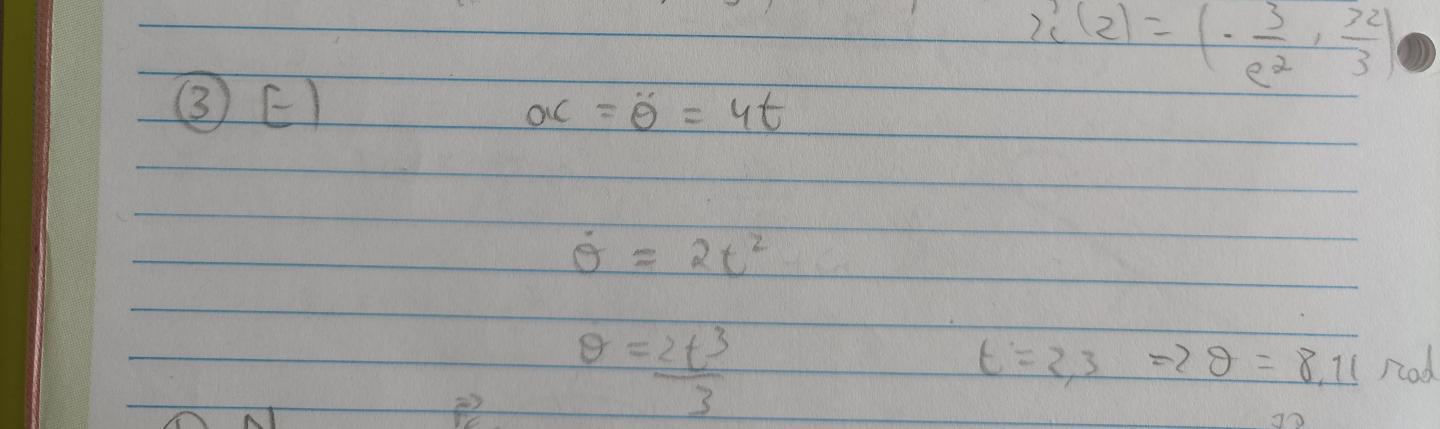 ẋ(2) = (- 3/e², 32/3)
③ E) α = θ̈ = 4t
θ̇ = 2t²
θ = 2t³/3 t = 2,3 => θ = 8,11 rad